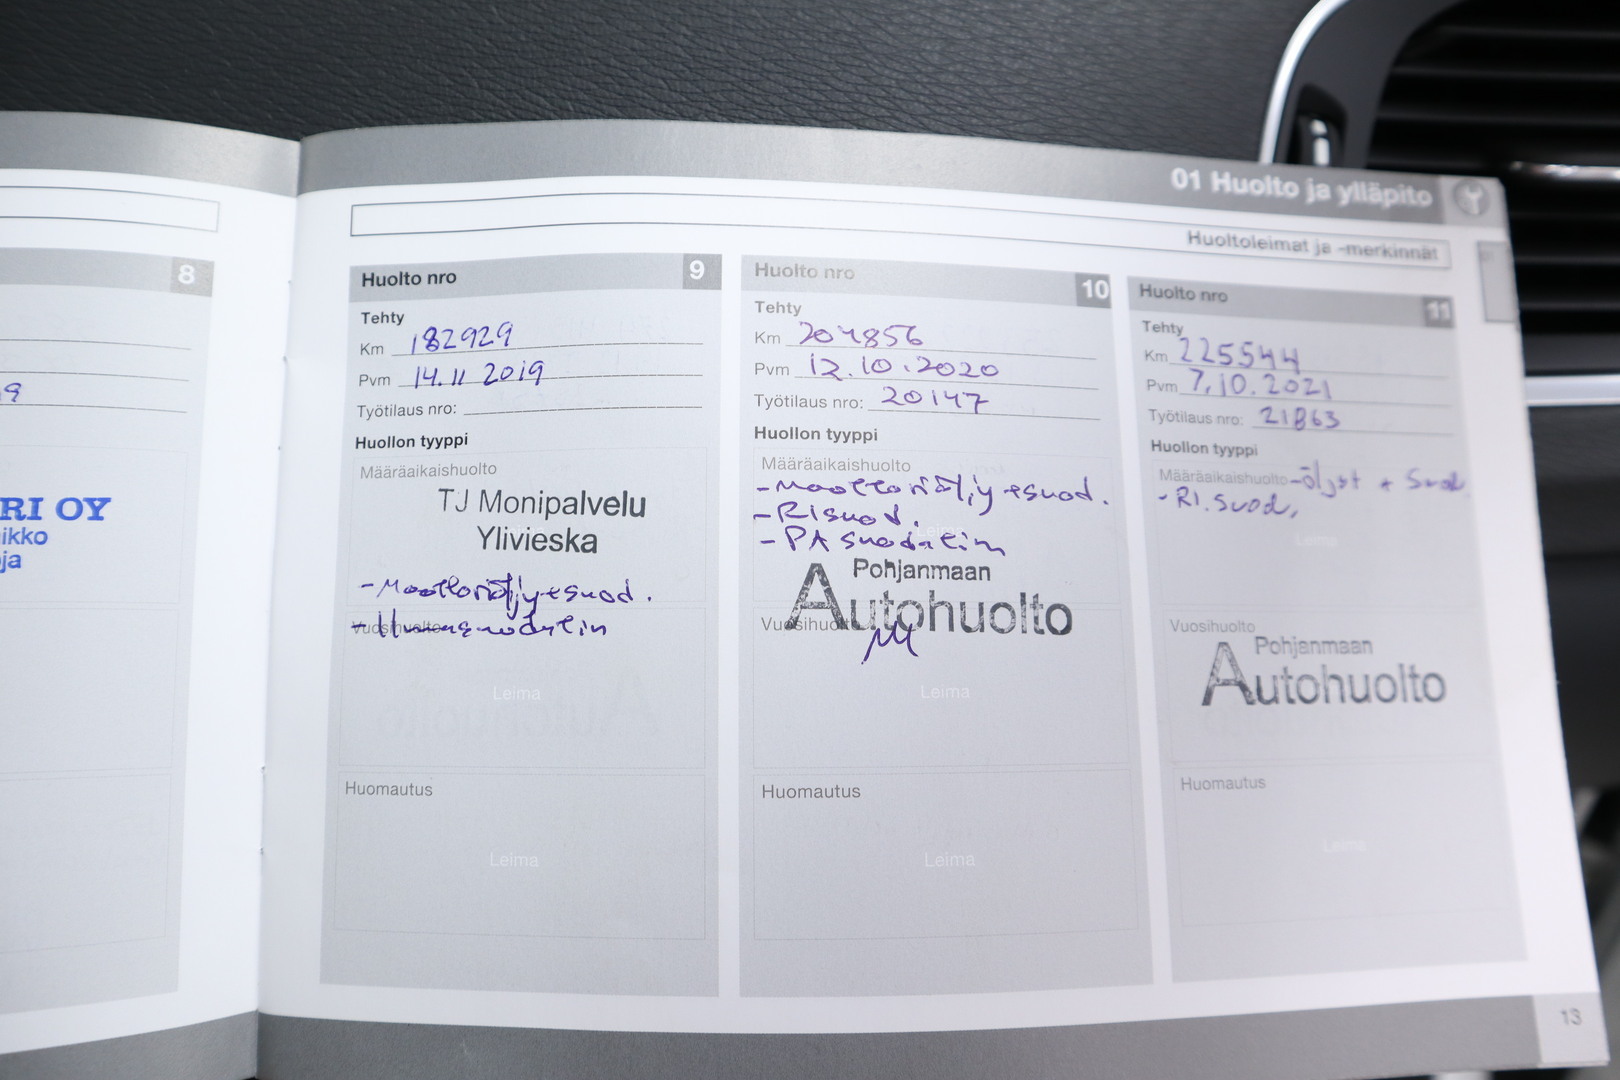 01 Huolto ja ylläpito
Huoltoleimat ja -merkinnät
8
9
RI OY
ikko
ja
Huolto nro 9
Tehty
Km 182929
Pvm 14.11 2019
Työtilaus nro:
Huollon tyyppi
Määräaikaishuolto
TJ Monipalvelu
Ylivieska
-Moottoriöljy+suod.
Vuosihuolto
Leima
Huomautus
Leima
Huolto nro 10
Tehty
Km 204856
Pvm 12.10.2020
Työtilaus nro: 20147
Huollon tyyppi
Määräaikaishuolto
-Moottoriöljy+suod.
-RIsuod.
Leima
-PAsuodatin
Pohjanmaan
Autohuolto
Vuosihuolto
Leima
Huomautus
Leima
Huolto nro 11
Tehty
Km 225544
Pvm 7.10.2021
Työtilaus nro: 21863
Huollon tyyppi
Määräaikaishuolto -öljyt + Suod.
-RI.suod.
Leima
Vuosihuolto
Pohjanmaan
Autohuolto
Huomautus
Leima
13